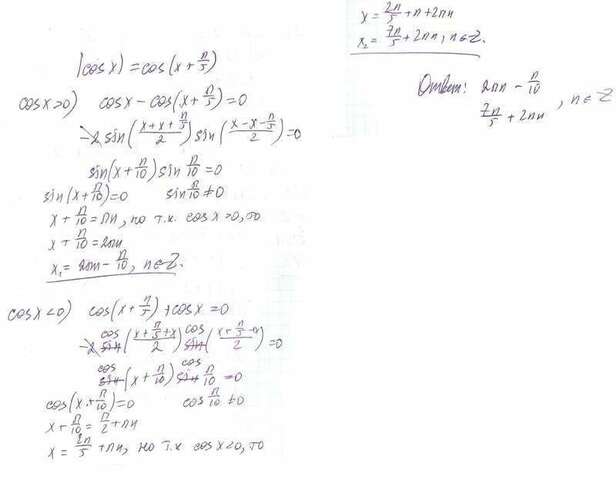 |cos x| = cos(x + π/5)
cos x > 0) cos x - cos(x + π/5) = 0
-2 sin((x + x + π/5)/2) sin((x - x - π/5)/2) = 0
sin(x + π/10) sin π/10 = 0
sin(x + π/10) = 0 sin π/10 ≠ 0
x + π/10 = πn, но т.к. cos x > 0, то
x + π/10 = 2πn
x₁ = 2πn - π/10, n ∈ Z.
cos x < 0) cos(x + π/5) + cos x = 0
2 cos((x + π/5 + x)/2) cos((x + π/5 - x)/2) = 0
cos(x + π/10) cos π/10 = 0
cos(x + π/10) = 0 cos π/10 ≠ 0
x + π/10 = π/2 + πn
x = 2π/5 + πn, но т.к. cos x < 0, то
x = 2π/5 + π + 2πn
x₂ = 7π/5 + 2πn, n ∈ Z.
Ответ: 2πn - π/10
7π/5 + 2πn , n ∈ Z